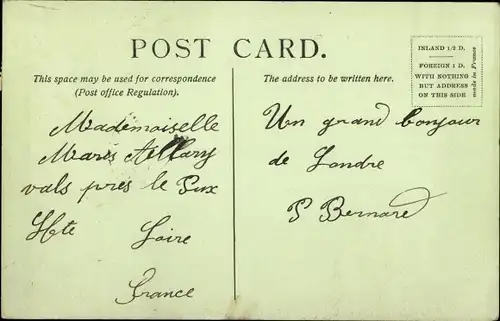 POST CARD.
This space may be used for correspondence
(Post office Regulation).
The address to be written here.
INLAND 1/2 D.
FOREIGN 1 D.
WITH NOTHING
BUT ADDRESS
ON THIS SIDE
made in France
Mademoiselle
Marie
vals près le Puy
Hte Loire
France
Un grand bonjour
de Londre
P Bernard